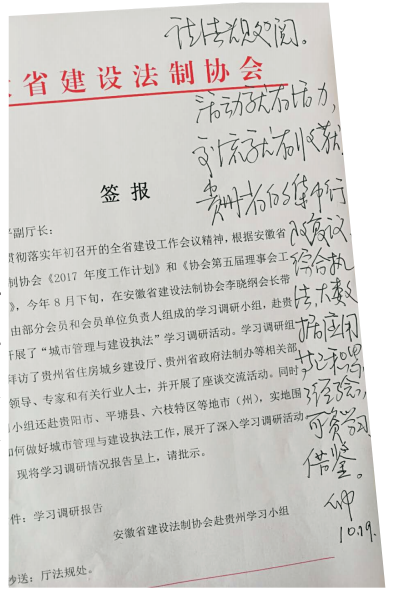 请法规处阅。
省建设法制协会
活动就有活力,
交流就有收获。
贵州省的集中行
政复议、
综合执
法、大数
据应用
等
经验,
可资学习
借鉴。
10.19.
签报
副厅长:
贯彻落实年初召开的全省建设工作会议精神，根据安徽省
制协会《2017 年度工作计划》和《协会第五届理事会工
》，今年 8 月下旬，在安徽省建设法制协会李晓纲会长带
由部分会员和会员单位负责人组成的学习调研小组，赴贵
开展了“城市管理与建设执法”学习调研活动。学习调研组
拜访了贵州省住房城乡建设厅、贵州省政府法制办等相关部
领导、专家和有关行业人士，并开展了座谈交流活动。同时
小组还赴贵阳市、平塘县、六枝特区等地市（州），实地围
如何做好城市管理与建设执法工作，展开了深入学习调研活动
现将学习调研情况报告呈上，请批示。
件：学习调研报告
安徽省建设法制协会赴贵州学习小组
抄送：厅法规处。